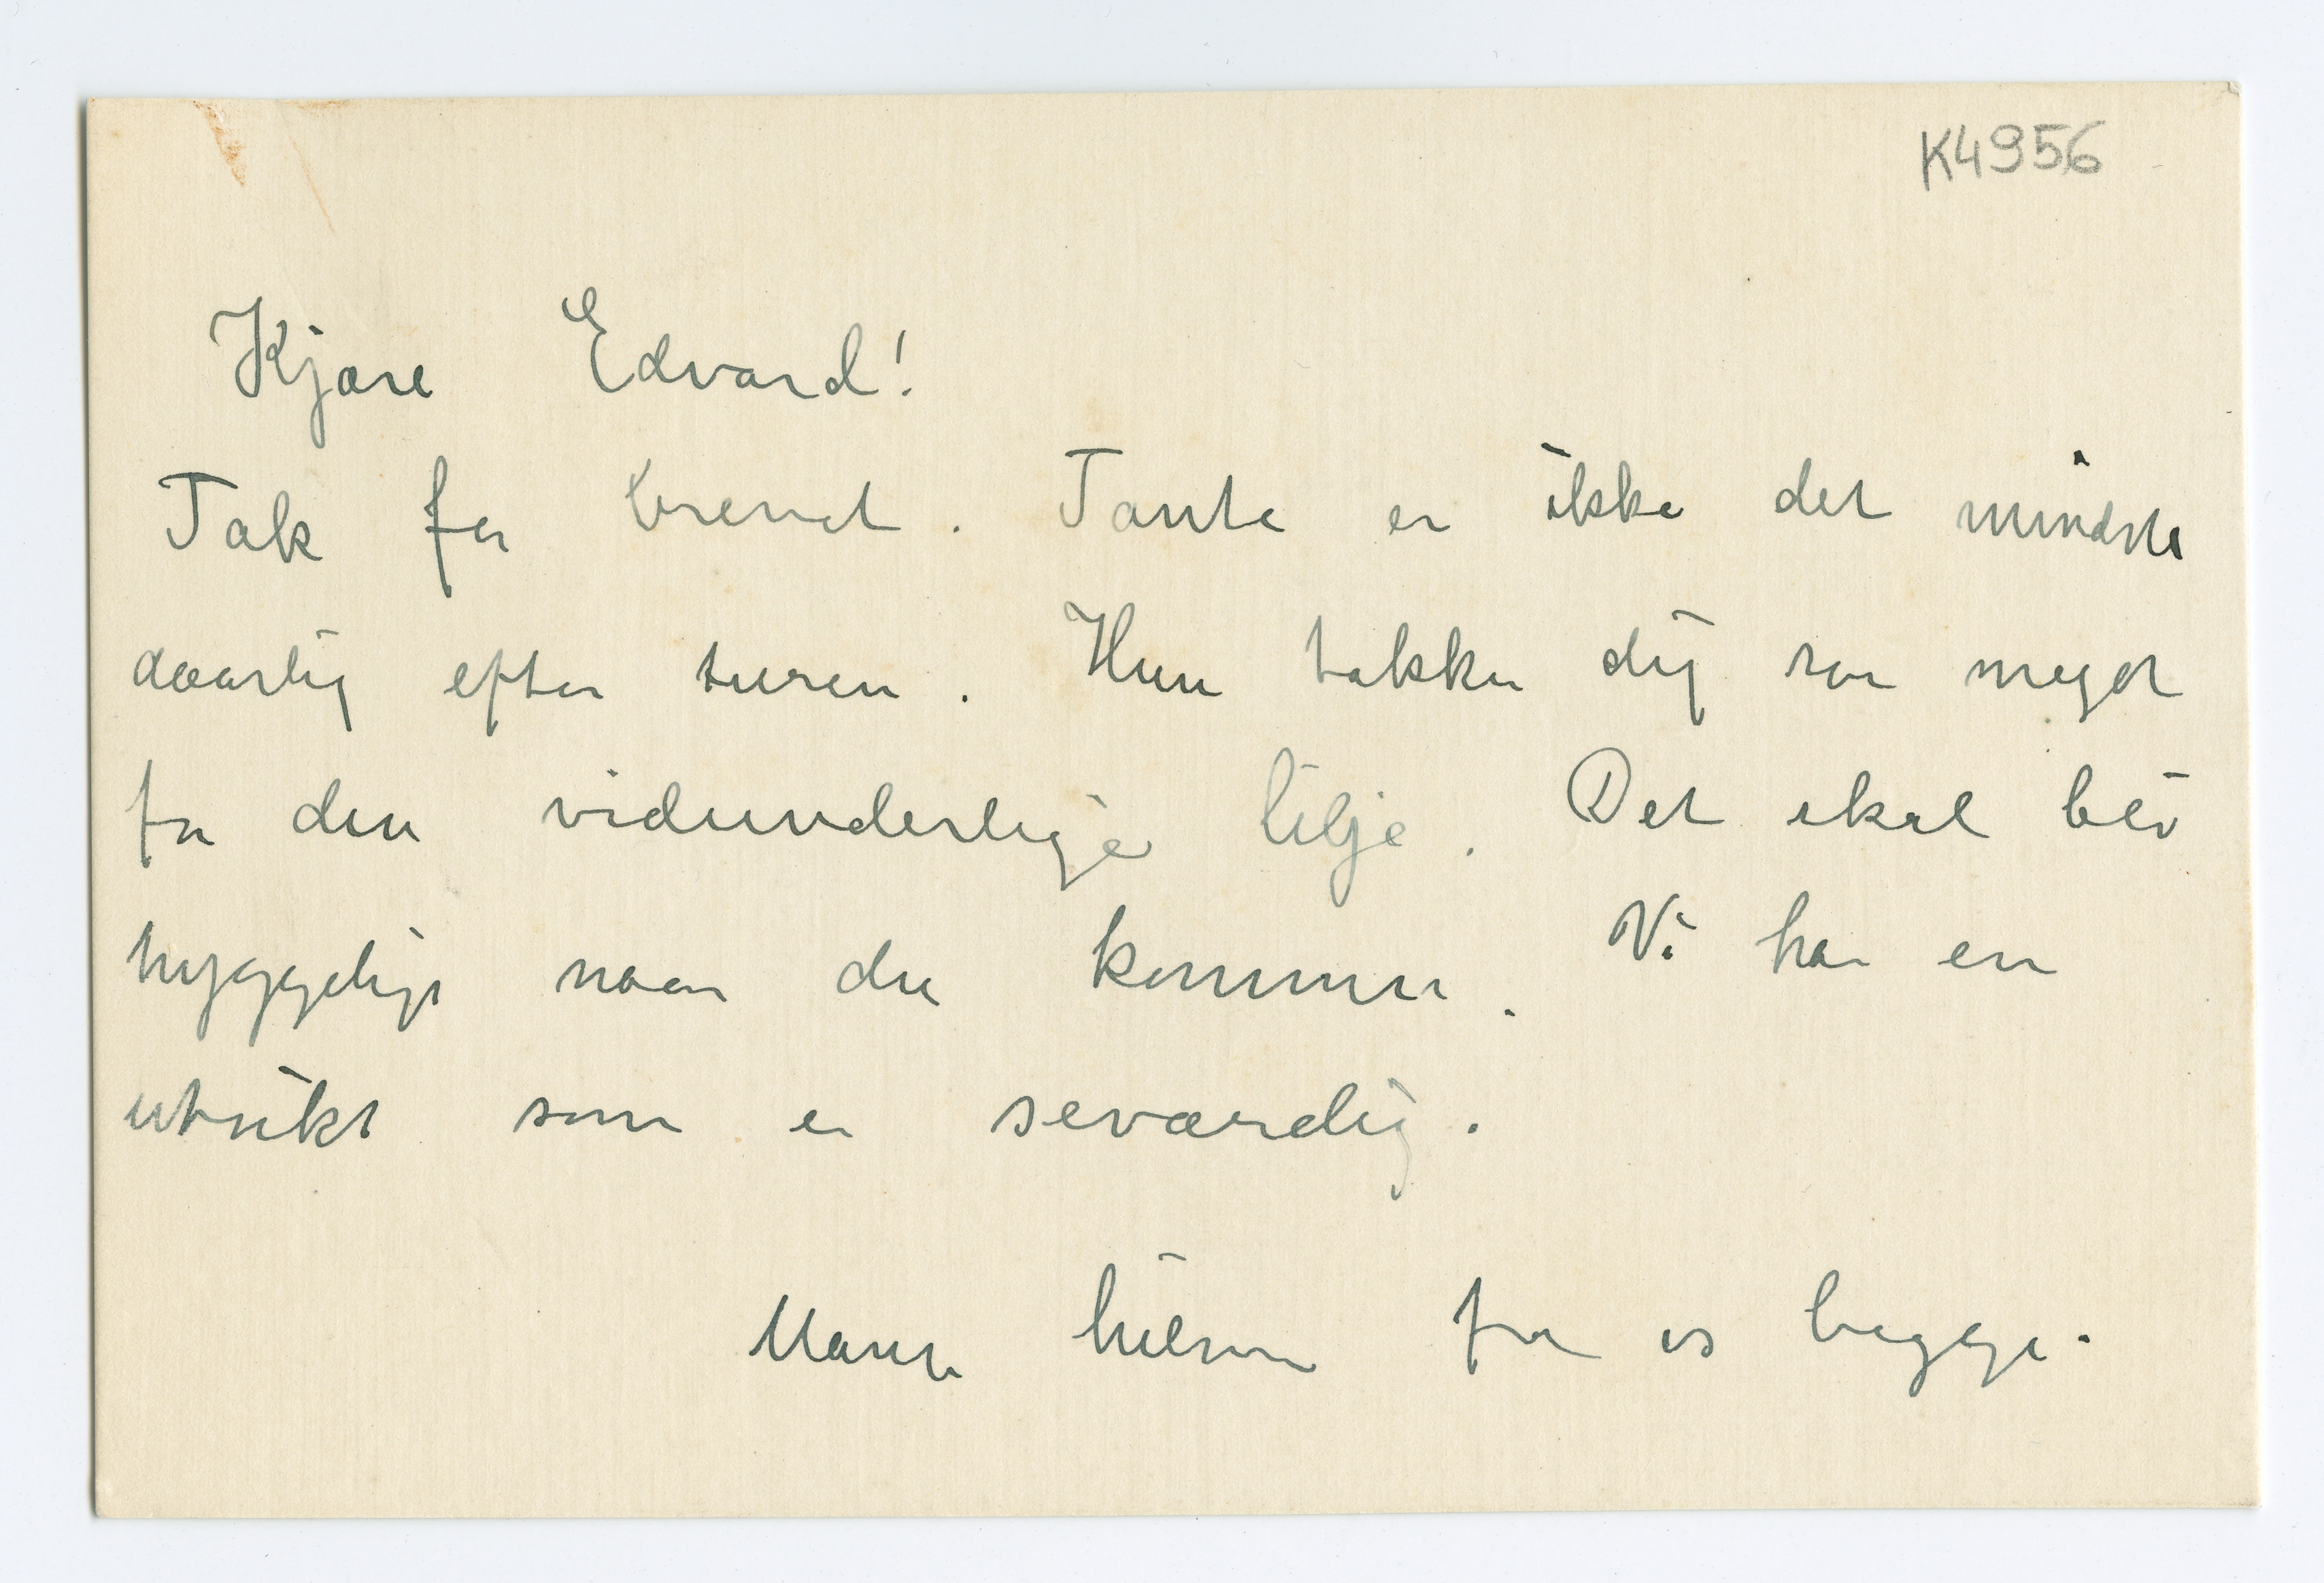 K4956
Kjære Edvard!
Tak for brevet. Tante er ikke det mindste
daarlig efter turen. Hun takker dig saa meget
for den vidunderlige lilje. Det skal bli
hyggeligt naar du kommer. Vi har en
utsikt som er seværdig.
Mange hilsener fra os begge.